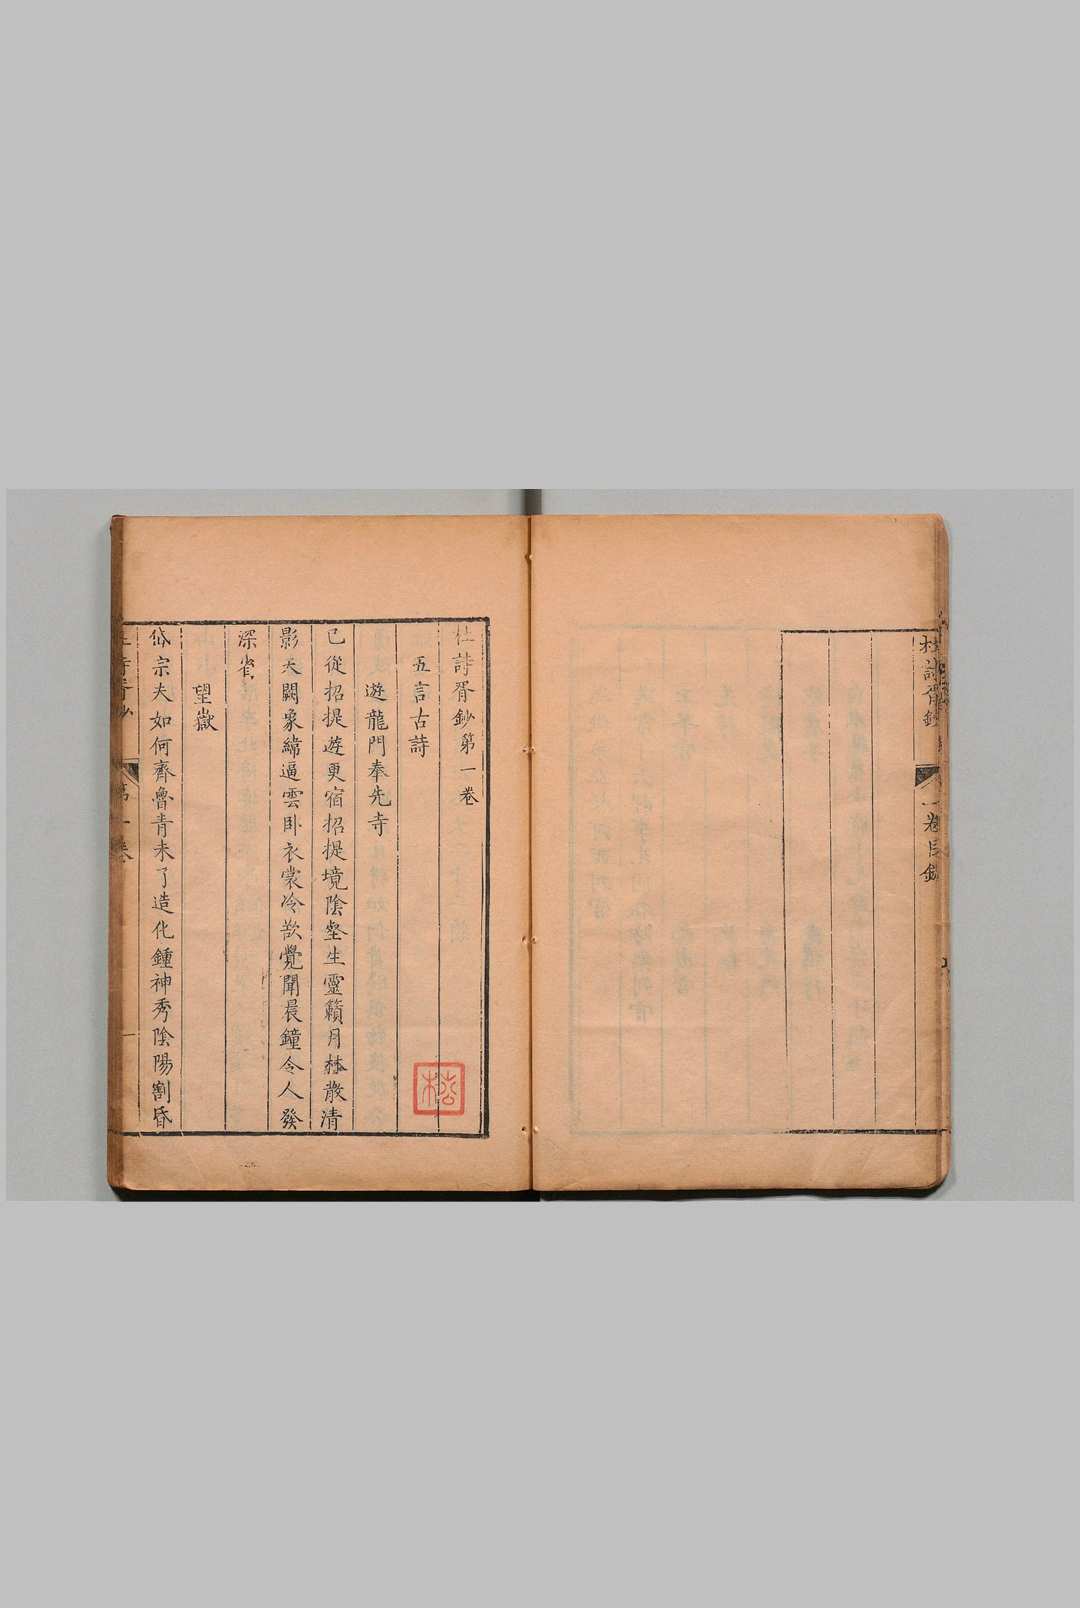 杜詩胥鈔
一卷目錄
杜詩胥鈔第一卷
五言古詩
遊龍門奉先寺
已從招提遊更宿招提境陰壑生靈籟月林散清
影天闕象緯逼雲臥衣裳冷欲覺聞晨鐘令人發
深省
望嶽
岱宗夫如何齊魯青未了造化鍾神秀陰陽割昏
杜詩胥鈔
第一卷
一